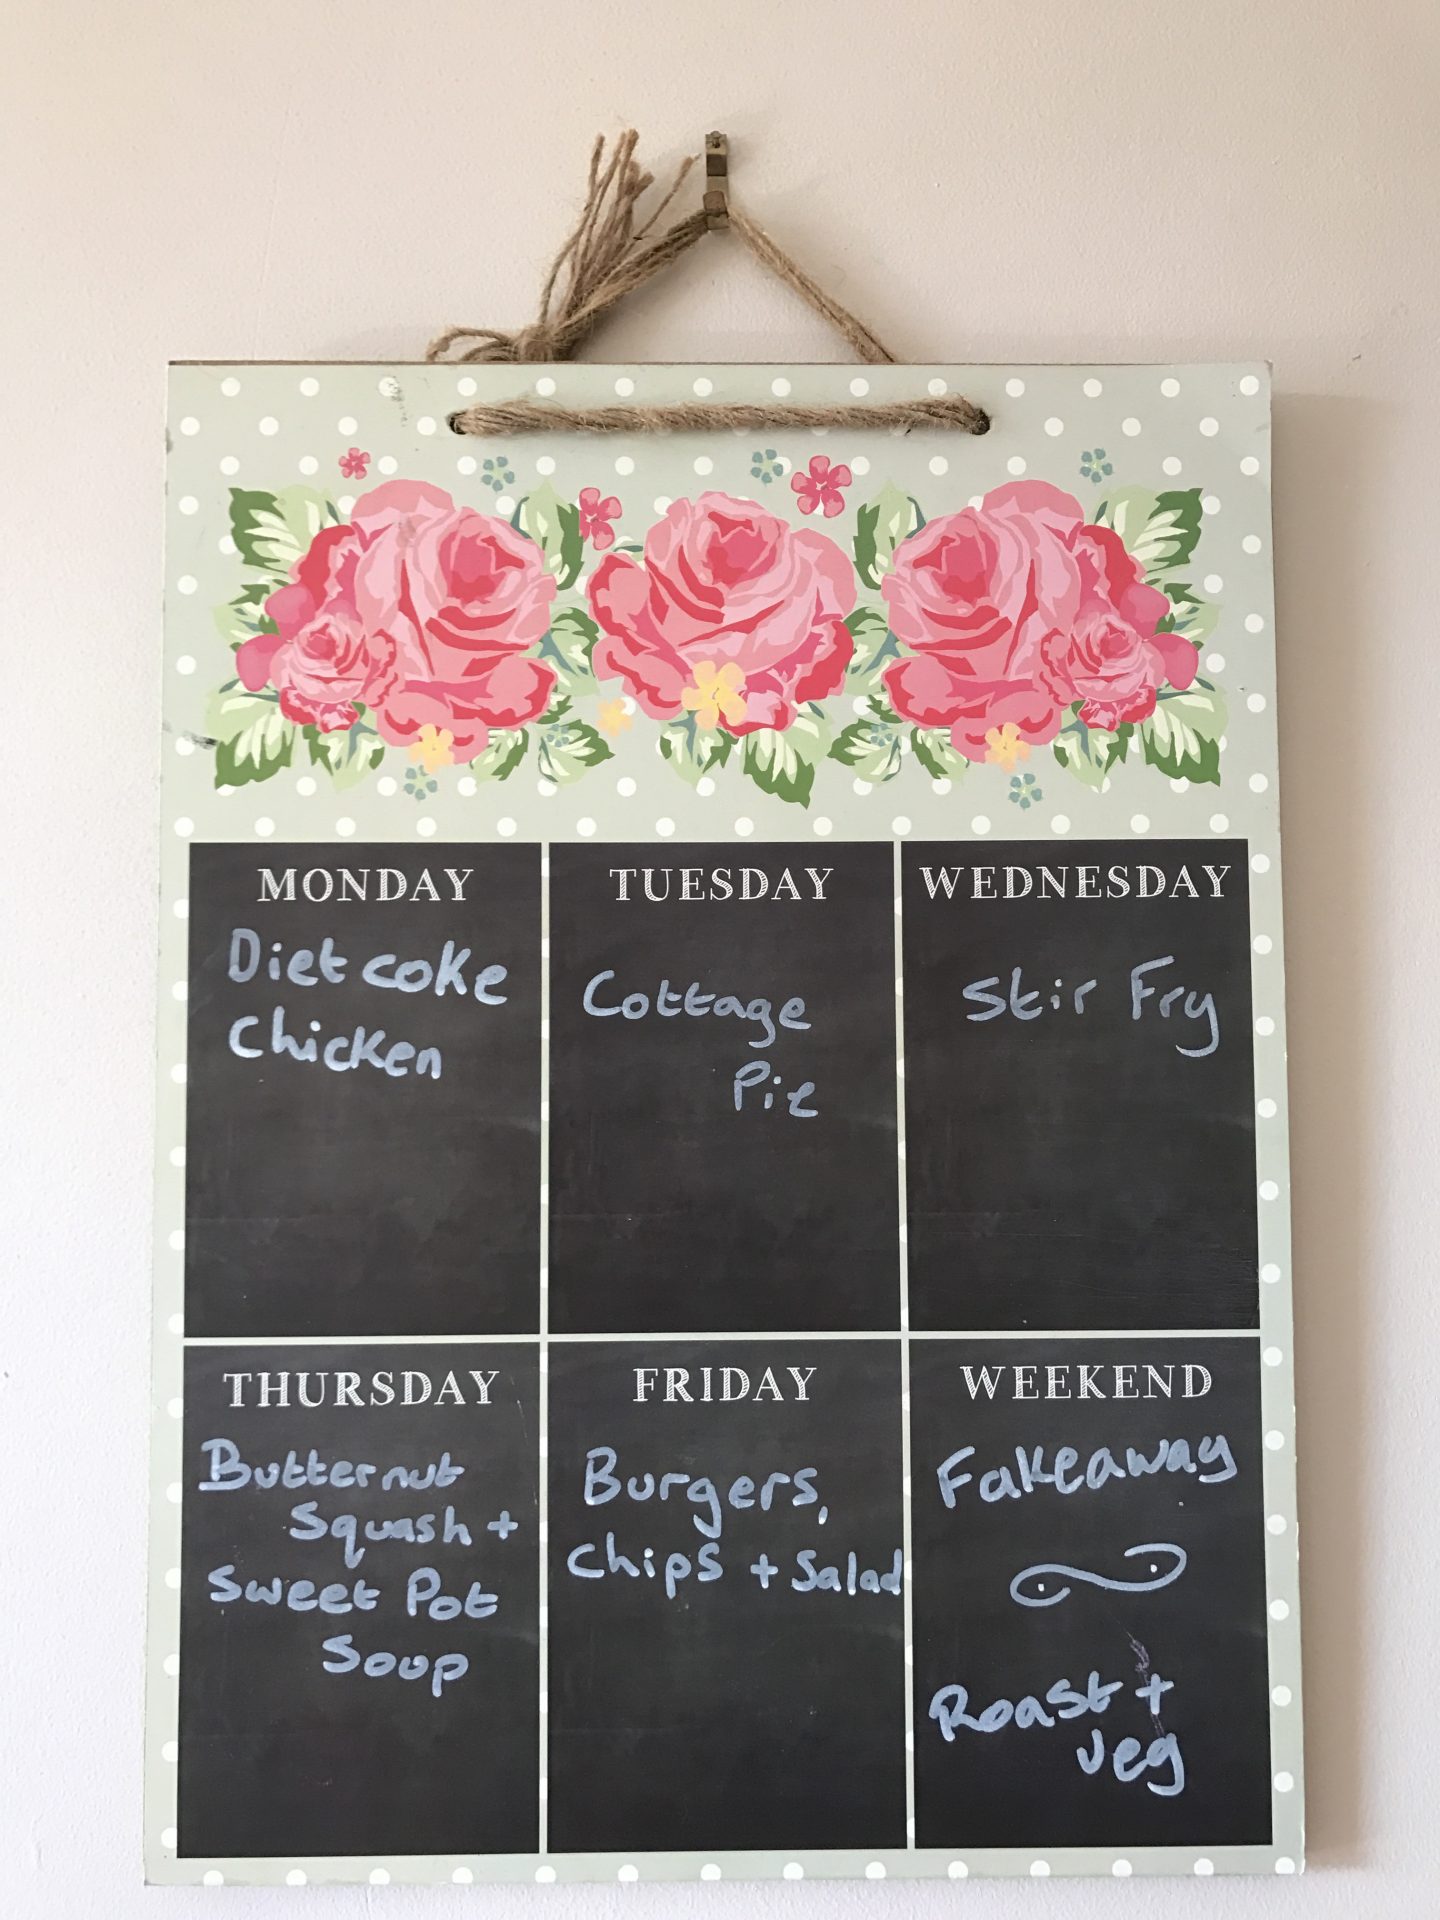 MONDAY
Diet coke
Chicken
TUESDAY
Cottage
Pie
WEDNESDAY
Stir Fry
THURSDAY
Butternut
Squash +
Sweet Pot
Soup
FRIDAY
Burgers,
Chips + Salad
WEEKEND
Fakeaway
Roast +
Veg